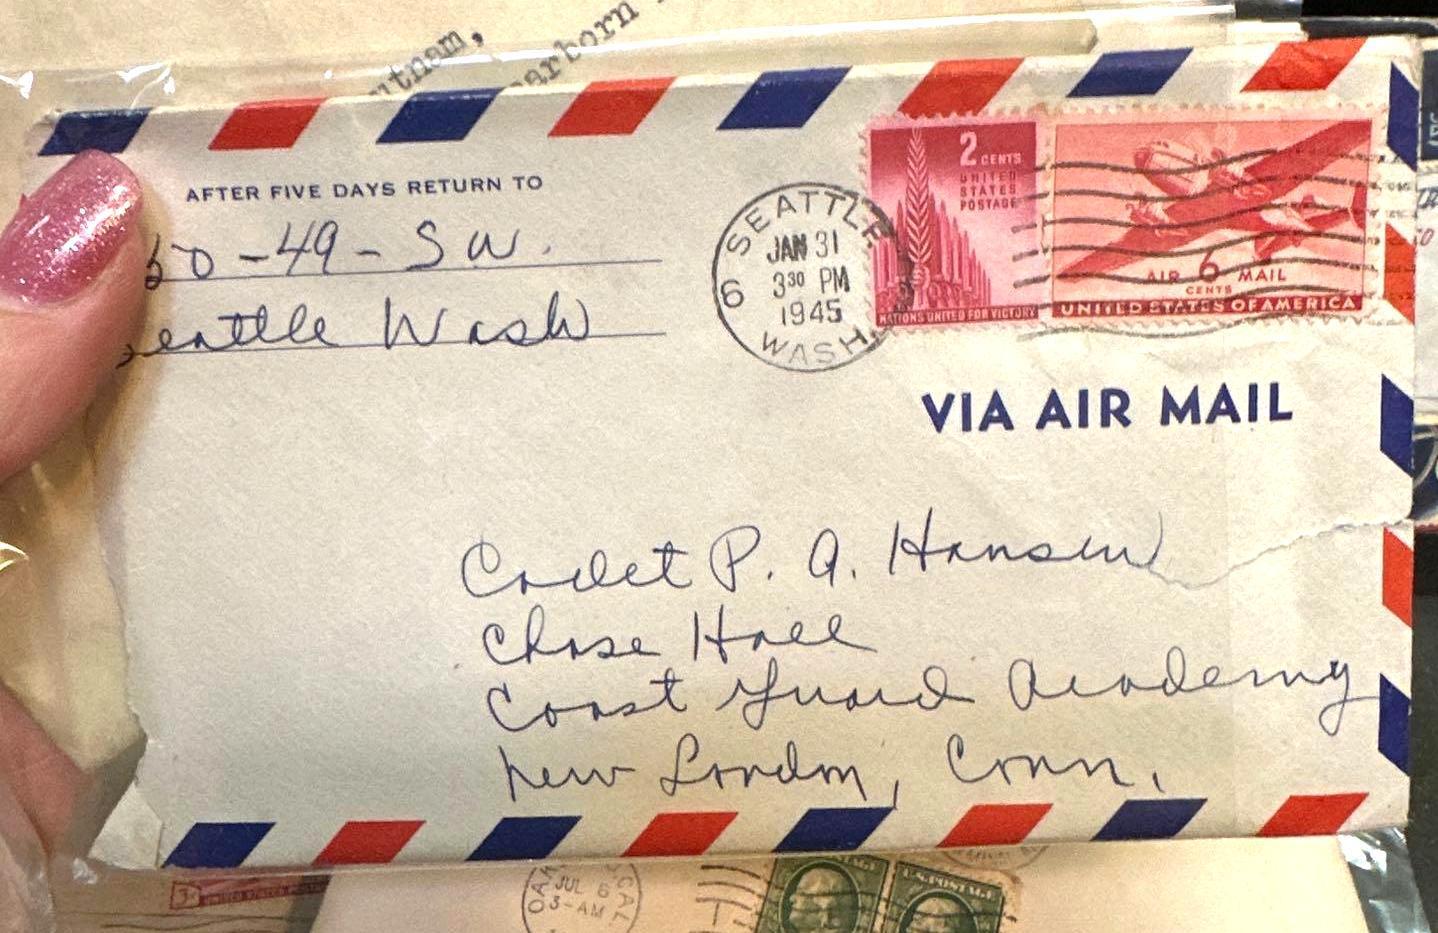 utnam,
earborn
AFTER FIVE DAYS RETURN TO
60-49-SW.
eattle Wash
SEATTLE
JAN 31
3 30 PM
1945
6
WASH.
2 CENTS
UNITED
STATES
POSTAGE
NATIONS UNITED FOR VICTORY
AIR 6 MAIL
CENTS
UNITED STATES OF AMERICA
VIA AIR MAIL
Cadet P. A. Hansen
Chase Hall
Coast Guard Academy
New London, Conn.
3¢ UNITED STATES POSTAGE
OAK CAL
JUL 6
3-AM
U.S. POSTAGE